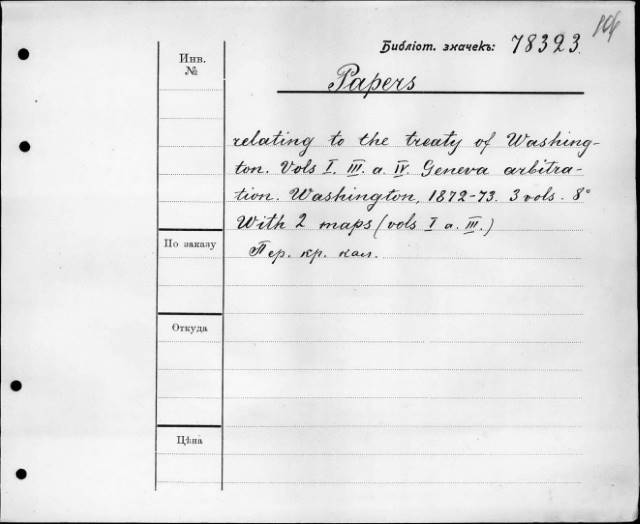 Библіот. значекъ: 78323.
Инв.
№
Papers
relating to the treaty of Washing-
ton. Vols I. III. a. IV. Geneva arbitra-
tion. Washington, 1872-73. 3 vols. 8°
With 2 maps (vols I a. III.)
По заказу
Пер. кр. кал.
Откуда
Цѣна